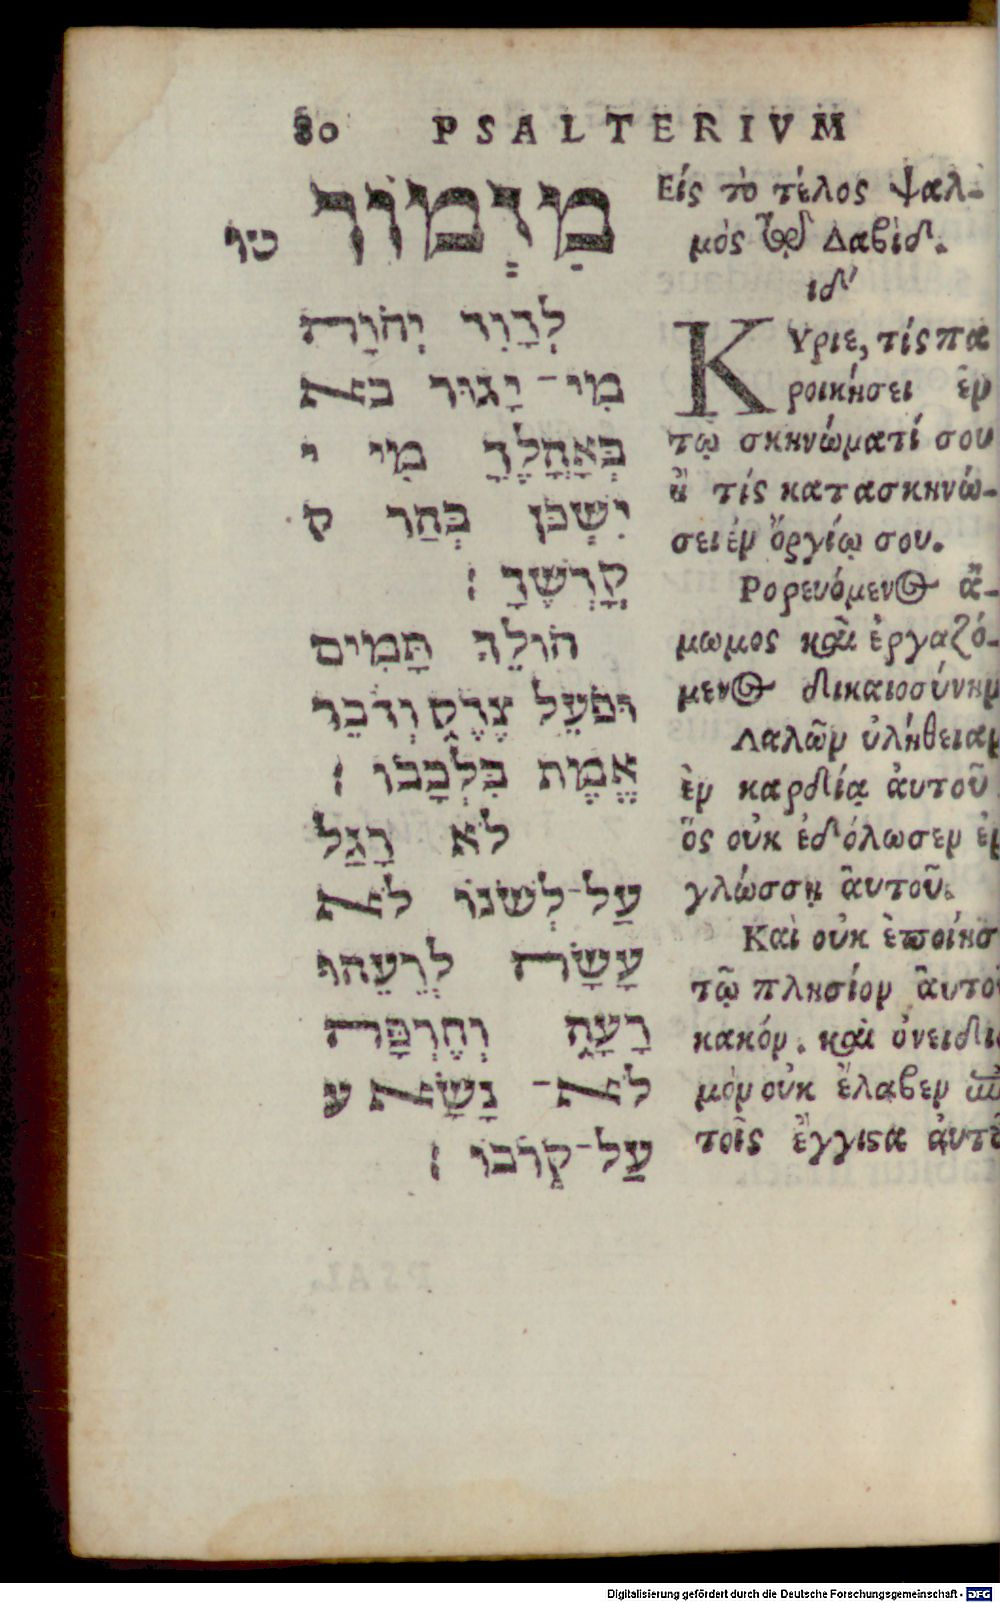 80 PSALTERIVM
מִזְמוֹר טו
לְדָוִד יְהֹוָה
מִי־ יָגוּר בא
בְּאָהֳלֶךָ מִי י
יִשְׁכֹּן בְּהַר ק
קָדְשֶׁךָ ׃
הוֹלֵךְ תָּמִים
וּפֹעֵל צֶדֶק וְדֹבֵר
אֱמֶת בִּלְבָבוֹ ׃
לֹא רָגַל
עַל־לְשֹׁנוֹ לא
עָשָׂה לְרֵעֵהוּ
רָעָה וְחֶרְפָּה
לֹא־ נָשָׂא ע
עַל־קְרֹבוֹ ׃
Εἰς τὸ τέλος ψαλ-
μός τῷ Δαβὶδ.
ιδʹ
ΚΥριε, τίς πα
ροικήσει ἐν
τῷ σκηνώματί σου
ἢ τίς κατασκηνώ-
σει ἐν ὄργίῳ σου.
Πορευόμενος ἄ-
μωμος καὶ ἐργαζό-
μενος δικαιοσύνην
Λαλῶν ἀλήθειαν
ἐν καρδίᾳ ἀυτοῦ
ὅς οὐκ ἐδόλωσεν ἐν
γλώσσῃ ἁυτοῦ.
Καὶ οὐκ ἐποίησ
τῷ πλησίον ἁυτοῦ
κακόν. καὶ ὀνειδισ
μὸν οὐκ ἔλαβεν
τοῖς ἔγγιστα ἀυτοῦ
Digitalisierung gefördert durch die Deutsche Forschungsgemeinschaft - DFG